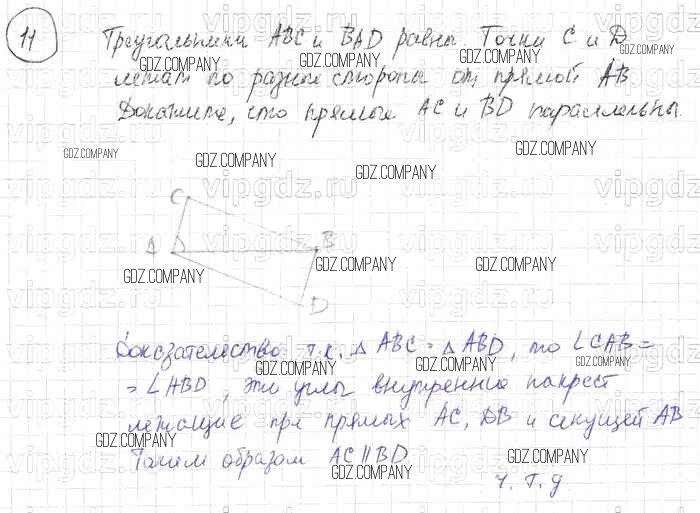 11
Треугольники ABC и BAD равны Точки C и D
лежат по разные стороны от прямой AB
Докажите, что прямые AC и BD параллельны.
C
A
B
D
Доказательство т.к. △ ABC = △ ABD, то ∠CAB =
= ∠ABD, эти углы внутренние накрест
лежащие при прямых AC, DB и секущей AB
Таким образом AC || BD
ч.т.д
GDZ.COMPANY
vipgdz.ru